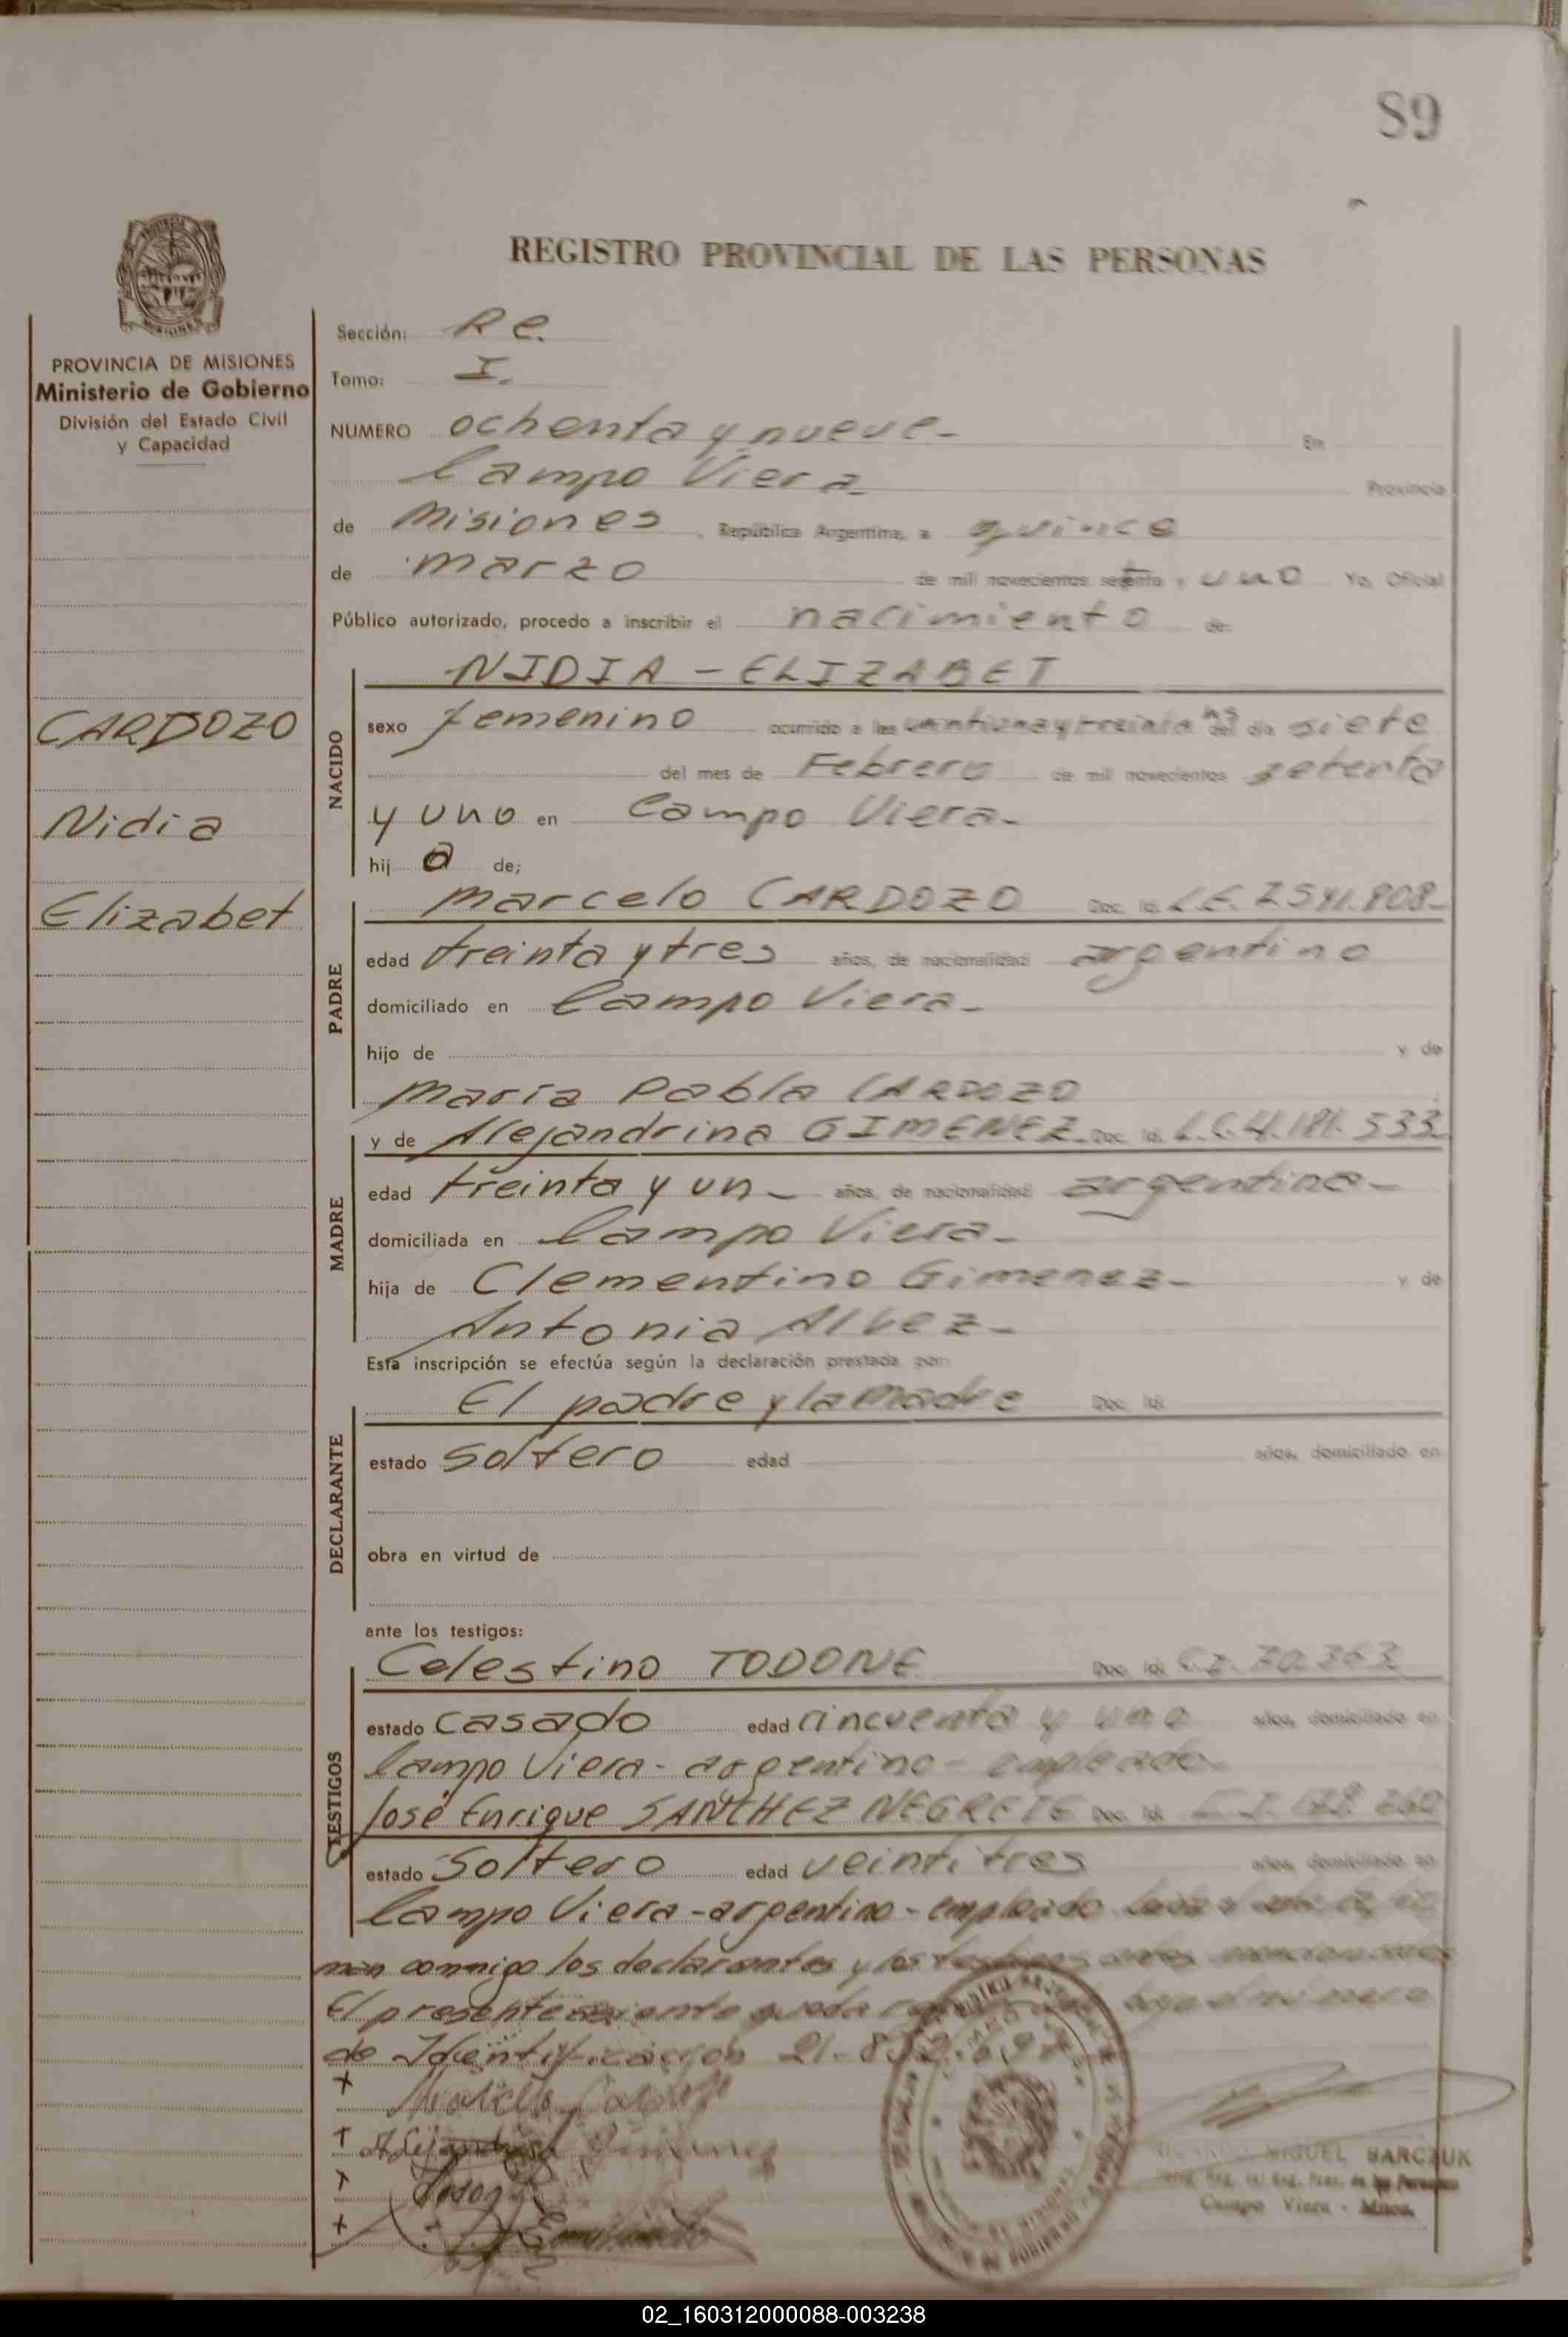 89
REGISTRO PROVINCIAL DE LAS PERSONAS
PROVINCIA DE MISIONES
Ministerio de Gobierno
División del Estado Civil
y Capacidad
Sección: Re.
Tomo: I.
NUMERO ochenta y nueve- En
Campo Viera- Provincia
de Misiones, República Argentina, a quince
de marzo de mil novecientos setenta y uno Yo, Oficial
Público autorizado, procedo a inscribir el nacimiento de:
NIDIA - ELIZABET
CARDOZO
Nidia
Elizabet
NACIDO
sexo femenino ocurrido a las veintiuna y treinta hs del día siete
del mes de Febrero de mil novecientos setenta
y uno en Campo Viera-
hij a de;
PADRE
Marcelo CARDOZO Doc. Id. L.E.
edad treinta y tres años, de nacionalidad argentino
domiciliado en Campo Viera-
hijo de y de
María Pabla CARDOZO
MADRE
y de Alejandrina GIMENEZ- Doc. Id. L.C. 4.181.533
edad treinta y un- años, de nacionalidad argentina-
domiciliada en Campo Viera-
hija de Clementino Gimenez- y de
Antonia Alvez-
Esta inscripción se efectúa según la declaración prestada por:
DECLARANTE
El padre y la madre Doc. Id.
estado soltero edad años, domiciliado en
obra en virtud de
ante los testigos:
TESTIGOS
Celestino TODONE Doc. Id. C.I.
estado casado edad cincuenta y uno años, domiciliado en
Campo Viera- argentino- empleado-
José Enrique SANCHEZ NEGRETE Doc. Id. C.I.
estado Soltero edad veintitres años, domiciliado en
Campo Viera- argentino- empleado
man conmigo los declarantes y los testigos antes mencionados
El presente asiento queda
de Identificación 21-
Marcelo Cardozo
Alejandrina Gimenez
MIGUEL BARCZUK
Campo Viera - Mnes.
02_160312000088-003238